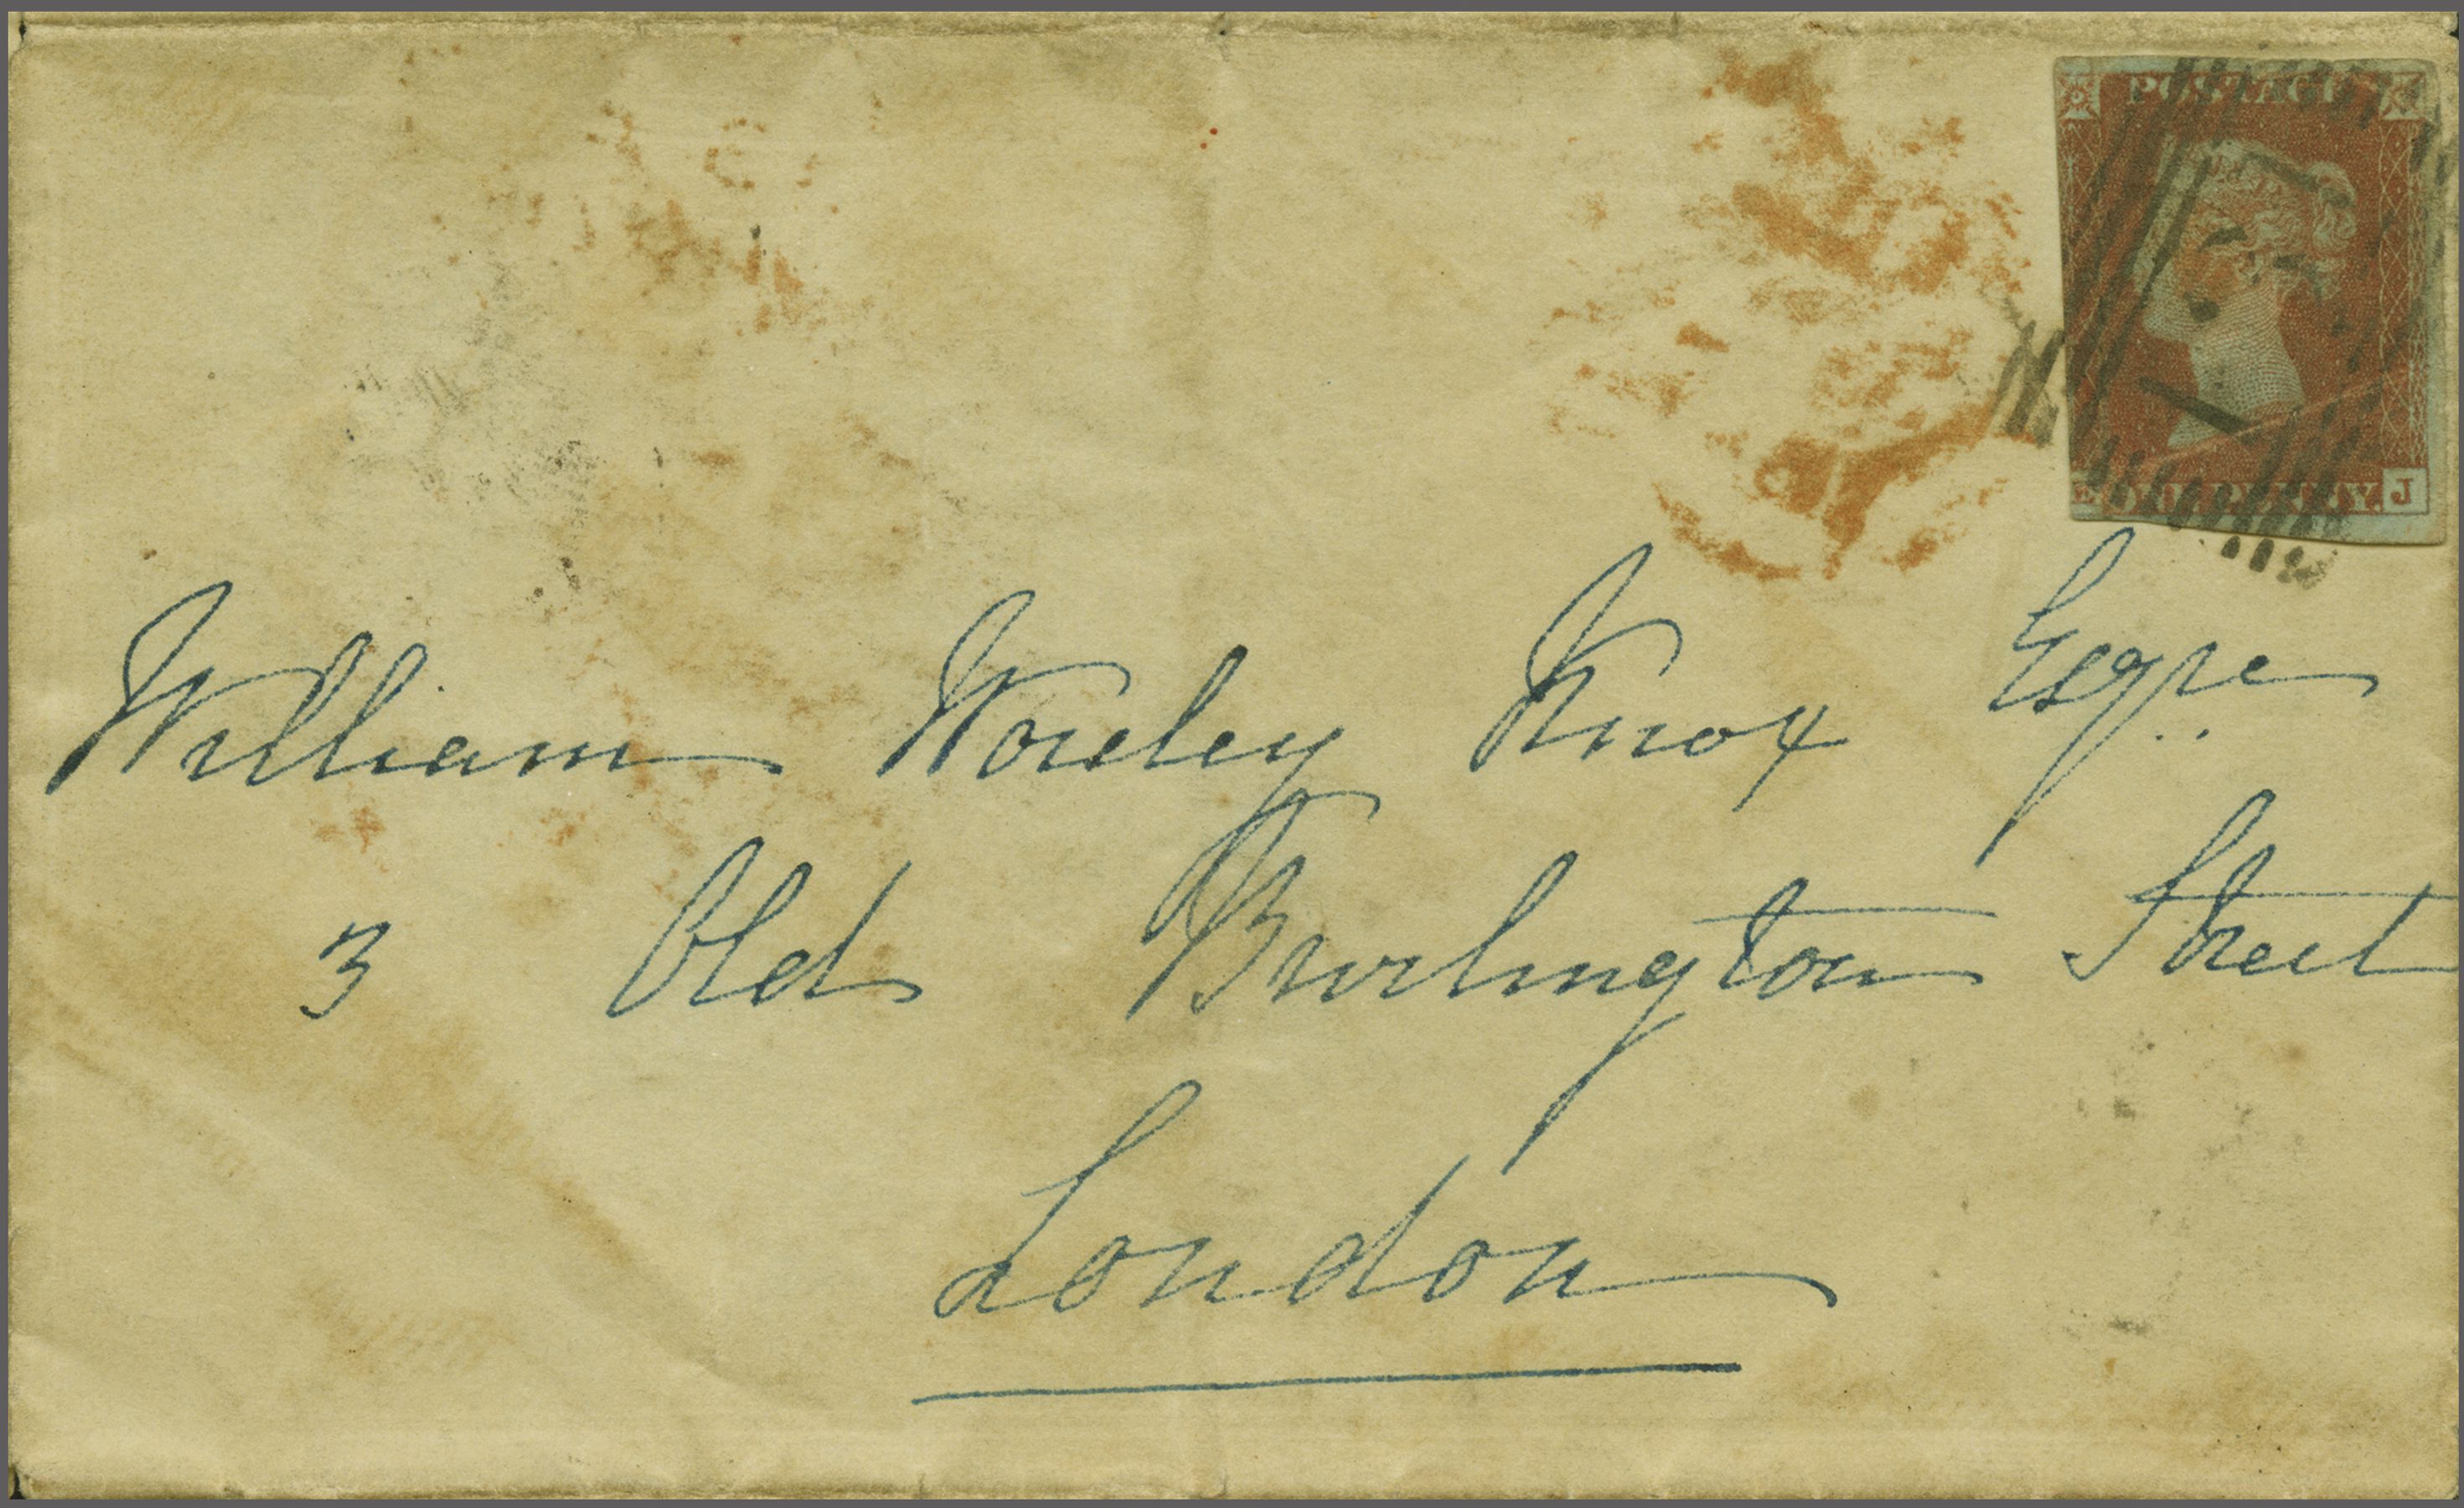 POSTAGE
ONE PENNY.
J
William Worley Knox Esqre
3 Old Burlington Street
London